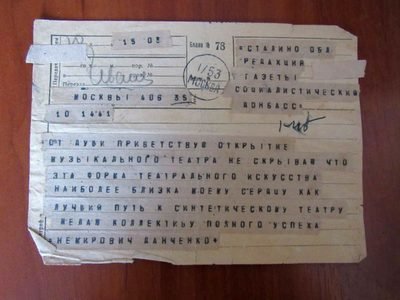 15 03
Бланк № 73
МОСКВЫ 406 35
10 1441
1/53
МОСКВА
=СТАЛИНО ОБЛ
РЕДАКЦИЯ
ГАЗЕТЫ
СОЦИАЛИСТИЧЕСКИЙ
ДОНБАСС=
ОТ ДУШИ ПРИВЕТСТВУЮ ОТКРЫТИЕ
МУЗЫКАЛЬНОГО ТЕАТРА НЕ СКРЫВАЮ ЧТО
ЭТА ФОРМА ТЕАТРАЛЬНОГО ИСКУССТВА
НАИБОЛЕЕ БЛИЗКА МОЕМУ СЕРДЦУ КАК
ЛУЧШИЙ ПУТЬ К СИНТЕТИЧЕСКОМУ ТЕАТРУ
ЖЕЛАЮ КОЛЛЕКТИВУ ПОЛНОГО УСПЕХА
=НЕМИРОВИЧ ДАНЧЕНКО=